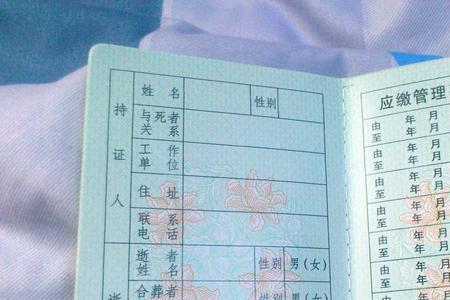 持证人
姓 名
性别
与死者
关 系
工 作
单 位
住 址
联 系
电 话
逝 者
姓 名
性别
男(女)
合葬者
性别
男(女)
逝
应缴管理
由 年 月
至 年 月
由 年 月
至 年 月
由 年 月
至 年 月
由 年 月
至 年 月
由 年 月
至 年 月
由 年 月